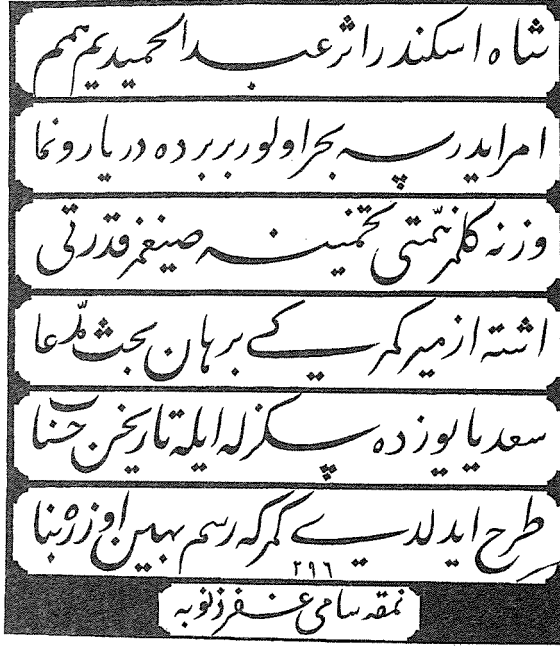 شاه اسكندر اثر عبد الحميد يم همم
امر ايدرسه بحر اولور بر برده دريا رونما
وزنه كلمز همّتی تخمينه صيغمز قدرتی
اشته ازمير كمركی برهان بحث مدّعا
سعديا يوزده سكزله ايله تاريخن
طرح ايدلدی كمركه رسم بهين اوزره بنا
٢٩٦
نمقه سامی غفر ذنوبه